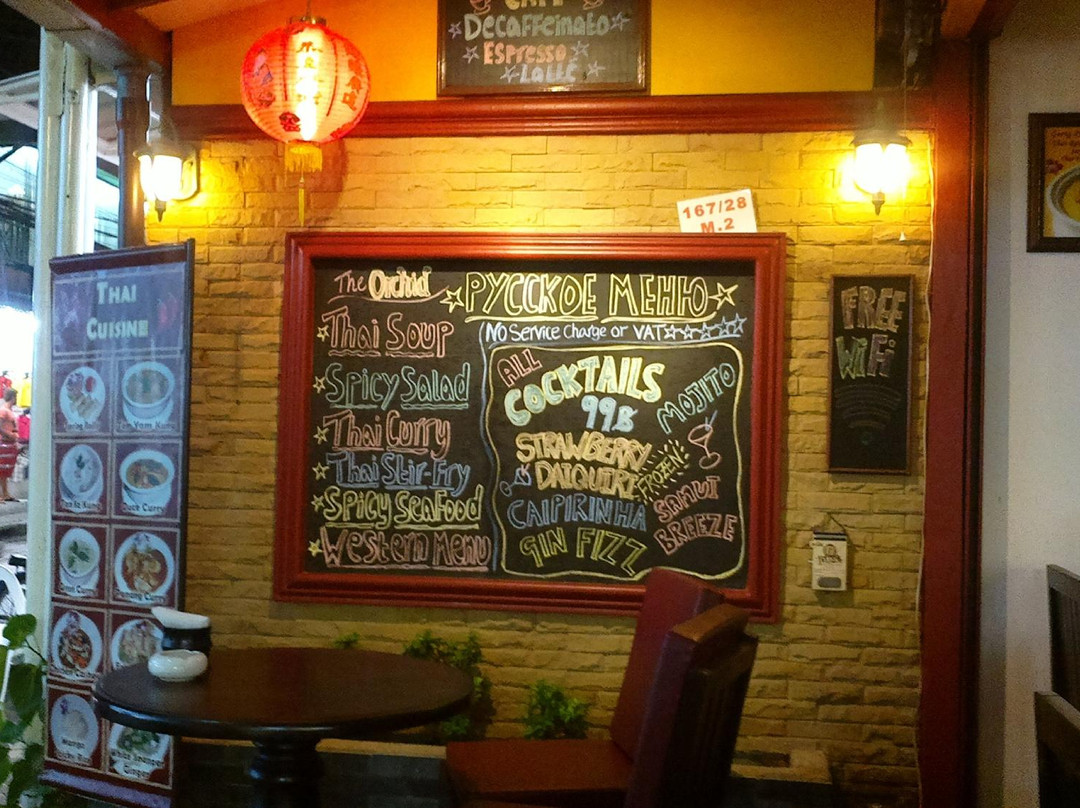 Decaffeinato
Espresso
Latté
167/28
M.2
The Orchid
РУССКОЕ МЕНЮ
No Service Charge or VAT
Thai Soup
Spicy Salad
Thai Curry
Thai Stir-Fry
Spicy Seafood
Western Menu
ALL
COCKTAILS
99B
MOJITO
STRAWBERRY
DAIQUIRI
FROZEN!
CAIPIRINHA
SAMUI
BREEZE
GIN FIZZ
FREE
WiFi
THAI
CUISINE
Spring Rolls
Tom Yam Kung
Duck Curry